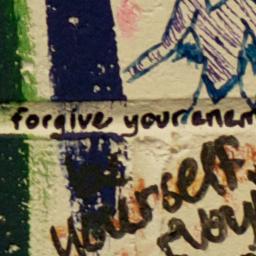 forgive your enem
yourself
you